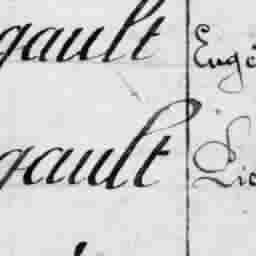 gault Eugé
gault Lie